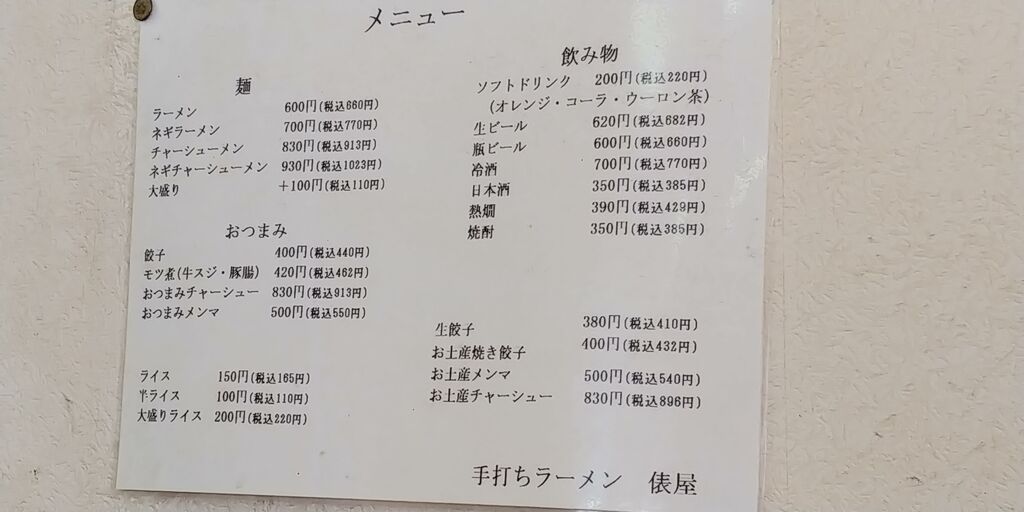 メニュー
麺
ラーメン 600円(税込660円)
ネギラーメン 700円(税込770円)
チャーシューメン 830円(税込913円)
ネギチャーシューメン 930円(税込1023円)
大盛り +100円(税込110円)
おつまみ
餃子 400円(税込440円)
モツ煮(牛スジ・豚腸) 420円(税込462円)
おつまみチャーシュー 830円(税込913円)
おつまみメンマ 500円(税込550円)
ライス 150円(税込165円)
半ライス 100円(税込110円)
大盛りライス 200円(税込220円)
飲み物
ソフトドリンク 200円(税込220円)
(オレンジ・コーラ・ウーロン茶)
生ビール 620円(税込682円)
瓶ビール 600円(税込660円)
冷酒 700円(税込770円)
日本酒 350円(税込385円)
熱燗 390円(税込429円)
焼酎 350円(税込385円)
生餃子 380円(税込410円)
お土産焼き餃子 400円(税込432円)
お土産メンマ 500円(税込540円)
お土産チャーシュー 830円(税込896円)
手打ちラーメン 俵屋